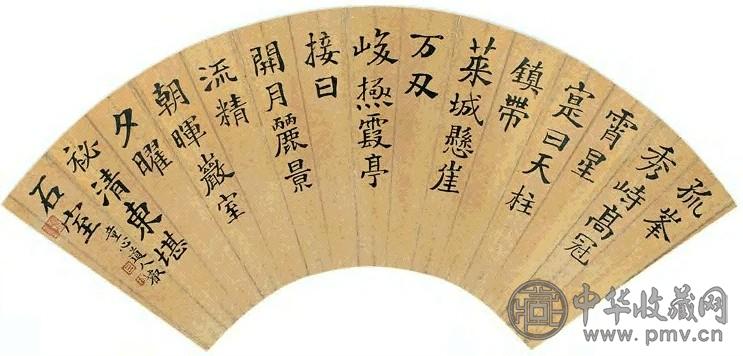 孤峯
秀峙高冠
霄星
寔曰天柱
鎮帶
萊城懸崖
万刃
峻極霞亭
接日
開月麗景
流精
朝暉巖室
夕曜
祕清東堪
石室
童心道人
中华收藏网
www.pmv.cn